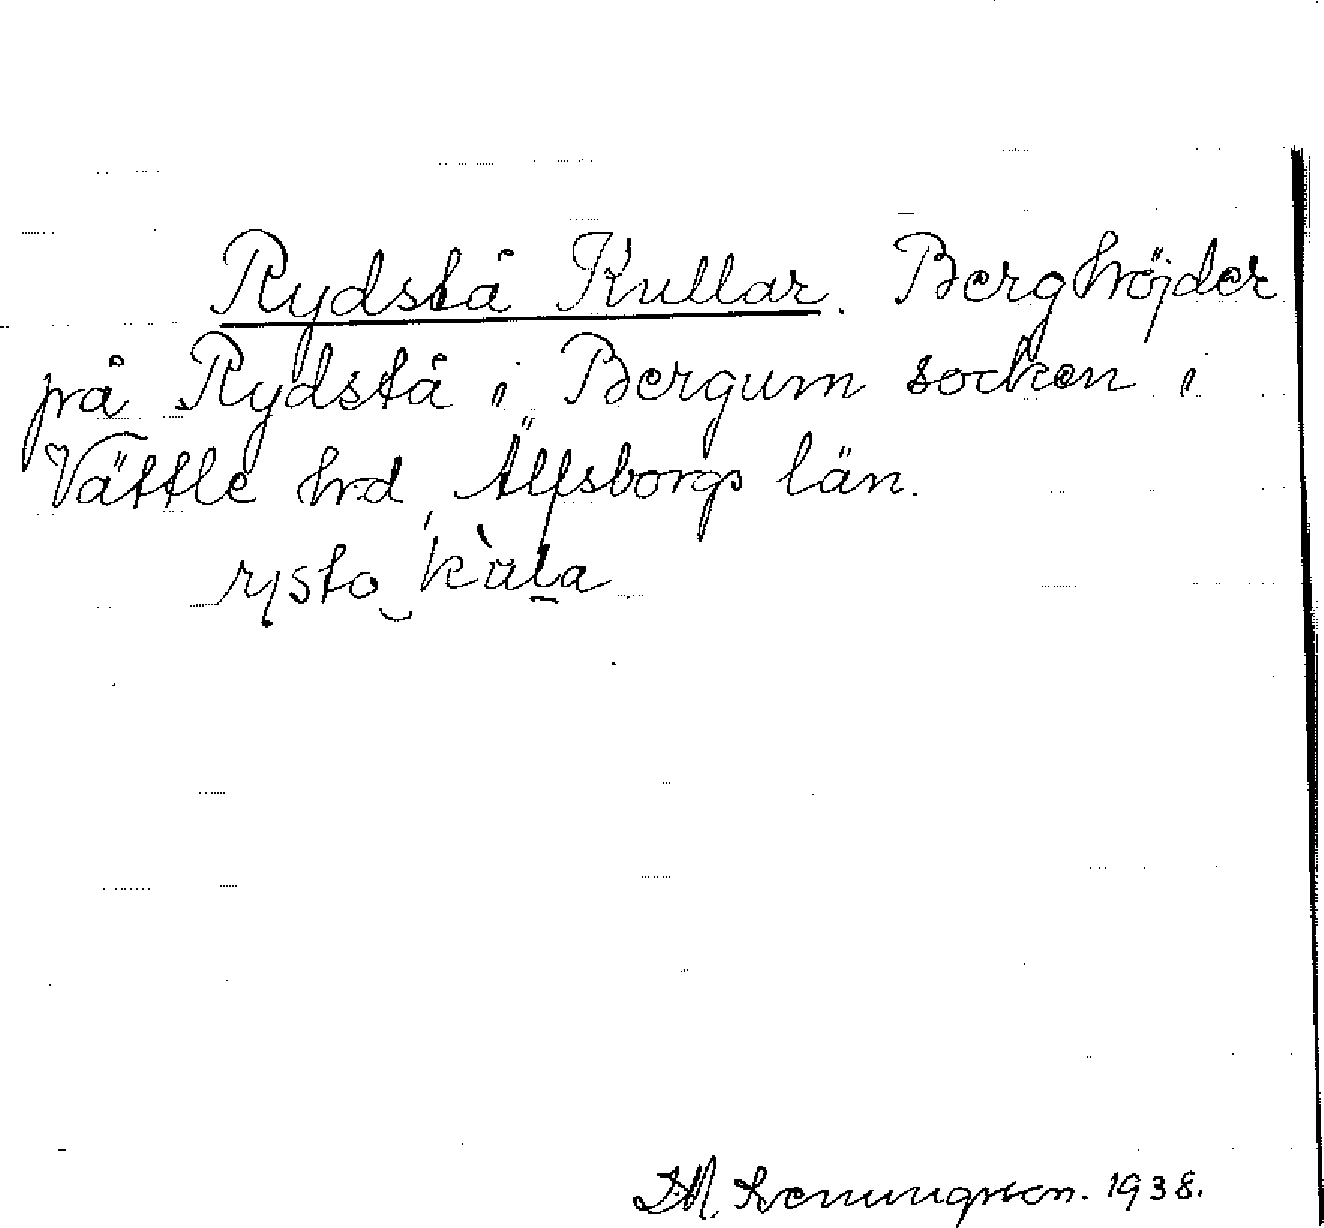 Rydstå Kullar. Berghöjder
på Rydstå i Bergum socken i
Vättle hrd, Älfsborgs län.
rysto
1938.